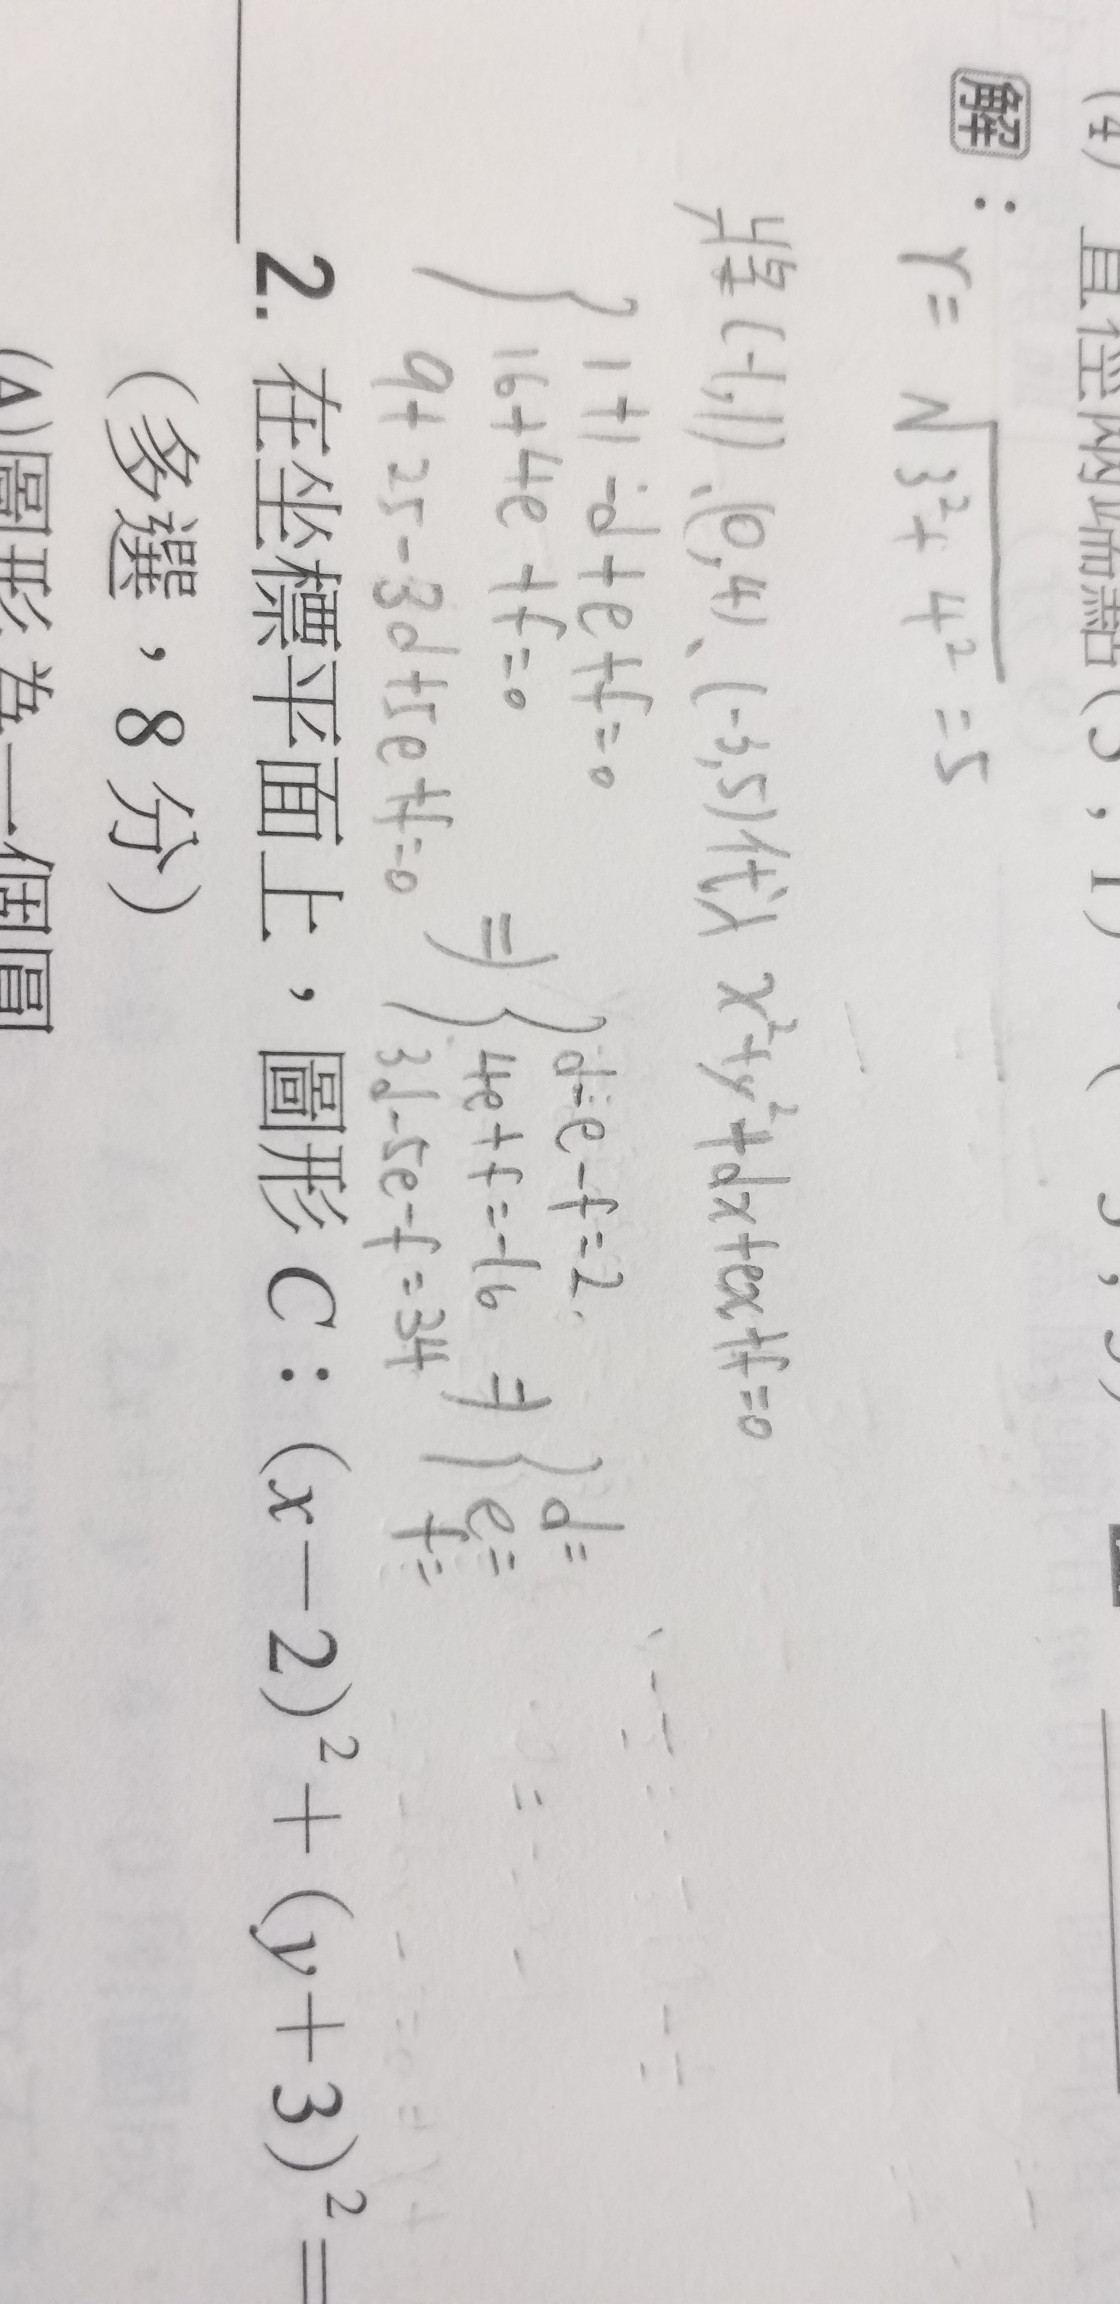 (4) 直徑兩端點(5,1)、(
解：r=√3²+4²=5
將(-1,1)、(0,4)、(-3,5)代入 x²+y²+dx+ex+f=0
{1+1-d+e+f=0
16+4e+f=0
9+25-3d+5e+f=0
⇒{d-e-f=2
4e+f=-16
3d-5e-f=34
⇒{d=
e=
f=
2. 在坐標平面上，圖形 C：(x－2)²＋(y＋3)²＝
(多選，8 分)
(A)圖形為一個圓